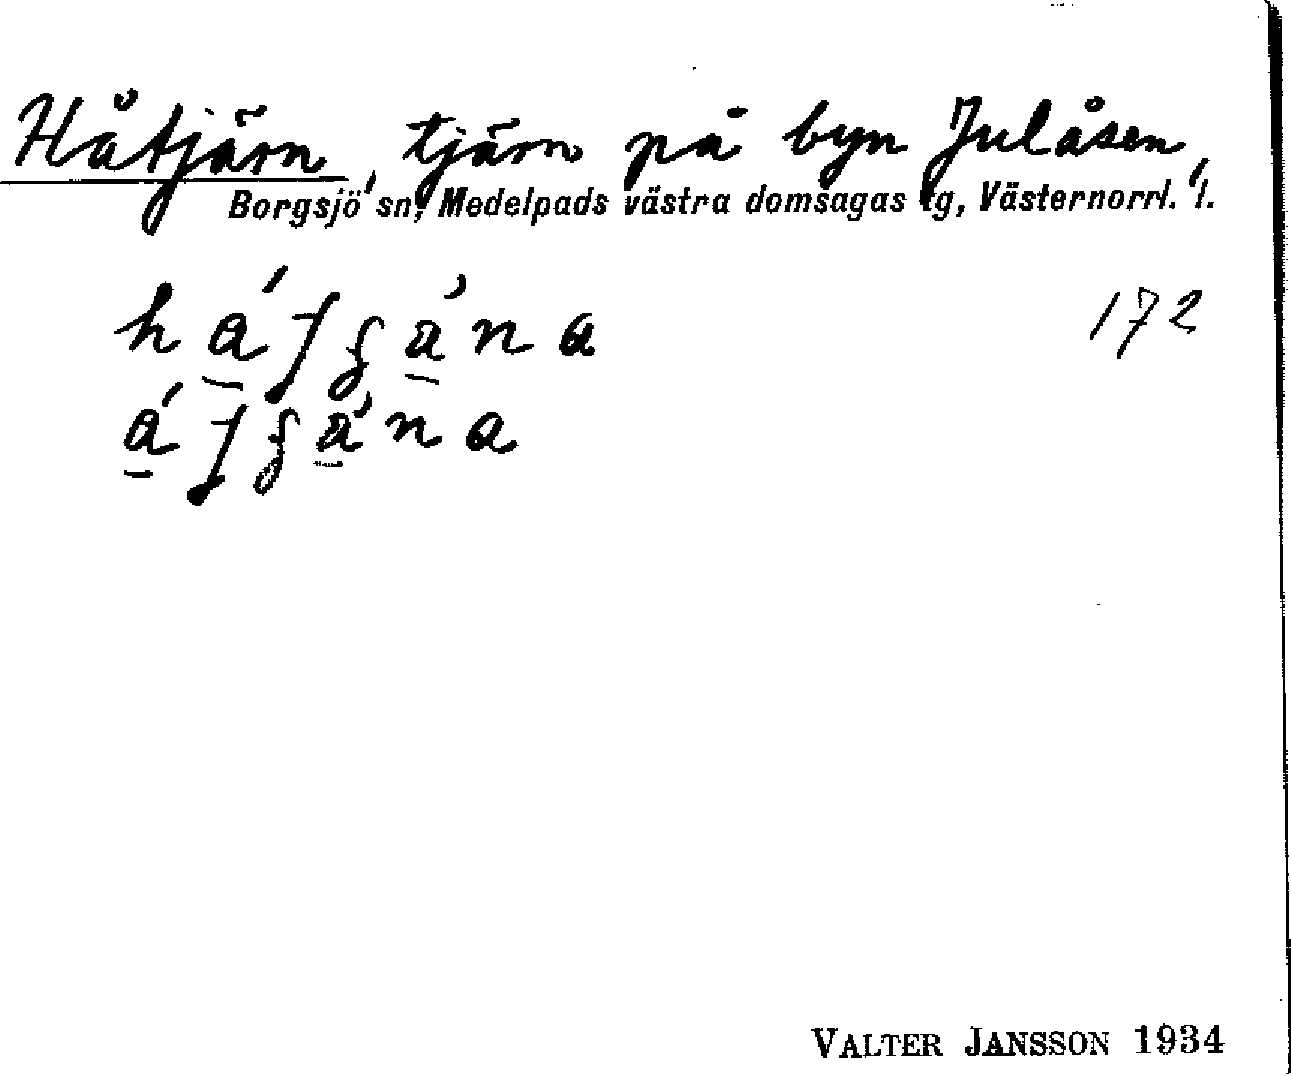 Håtjärn, tjärn på byn Julåsen,
Borgsjö sn, Medelpads västra domsagas tg, Västernorrl. l.
172
VALTER JANSSON 1934